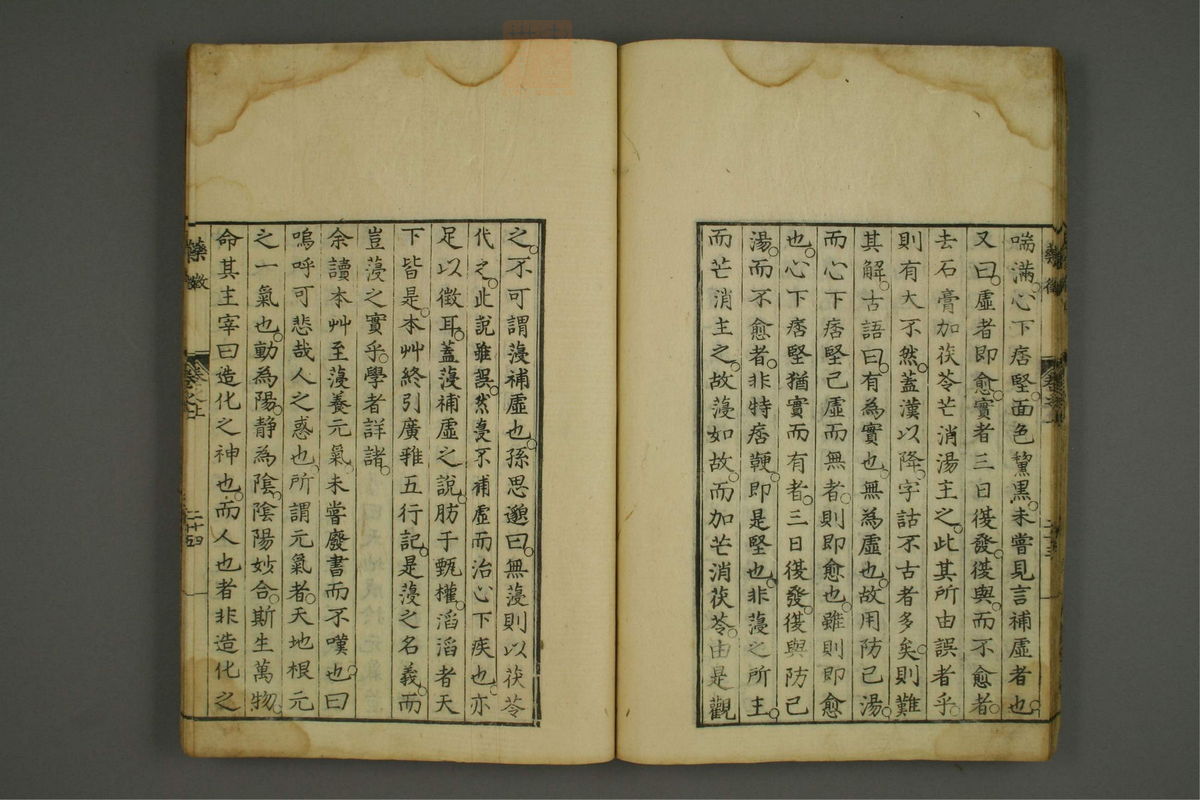 喘滿。心下痞堅。面色黧黑。未嘗見言補虛者也。
又曰。虛者即愈。實者三日復發。復與而不愈者。
去石膏加茯苓芒消湯主之。此其所由誤者乎。
則有大不然。蓋漢以降。字詁不古者多矣。則難
其解。古語曰。有為實也。無為虛也。故用防己湯。
而心下痞堅已虛而無者。則即愈也。雖則即愈
也。心下痞堅猶實而有者。三日復發。復與防己
湯。而不愈者。非特痞鞕。即是堅也。非蓡之所主。
而芒消主之。故蓡如故。而加芒消茯苓。由是觀
之。不可謂蓡補虛也。孫思邈曰。無蓡則以茯苓
代之。此說雖誤。然蓡不補虛而治心下疾也。亦
足以徵耳。蓋蓡補虛之說。昉于甄權。滔滔者天
下皆是。本艸終引廣雅五行記。是蓡之名義。而
豈蓡之實乎。學者詳諸。
余讀本艸至蓡養元氣。未嘗廢書而不嘆也。曰
嗚呼可悲哉人之惑也。所謂元氣者。天地根元
之一氣也。動為陽。靜為陰。陰陽妙合。斯生萬物。
命其主宰曰造化之神也。而人也者非造化之
藥徵
卷之上
二十四